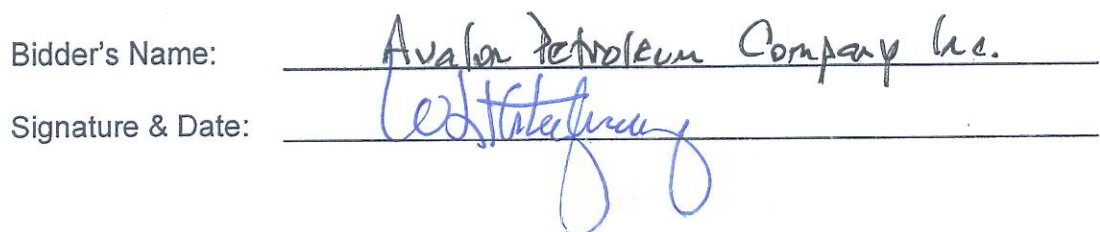 Bidder's Name: Avalon Petroleum Company Inc.
Signature & Date: